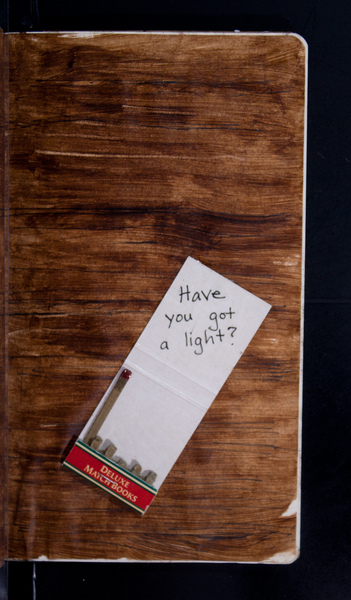 Have
you got
a light?
DELUXE
MATCH BOOKS